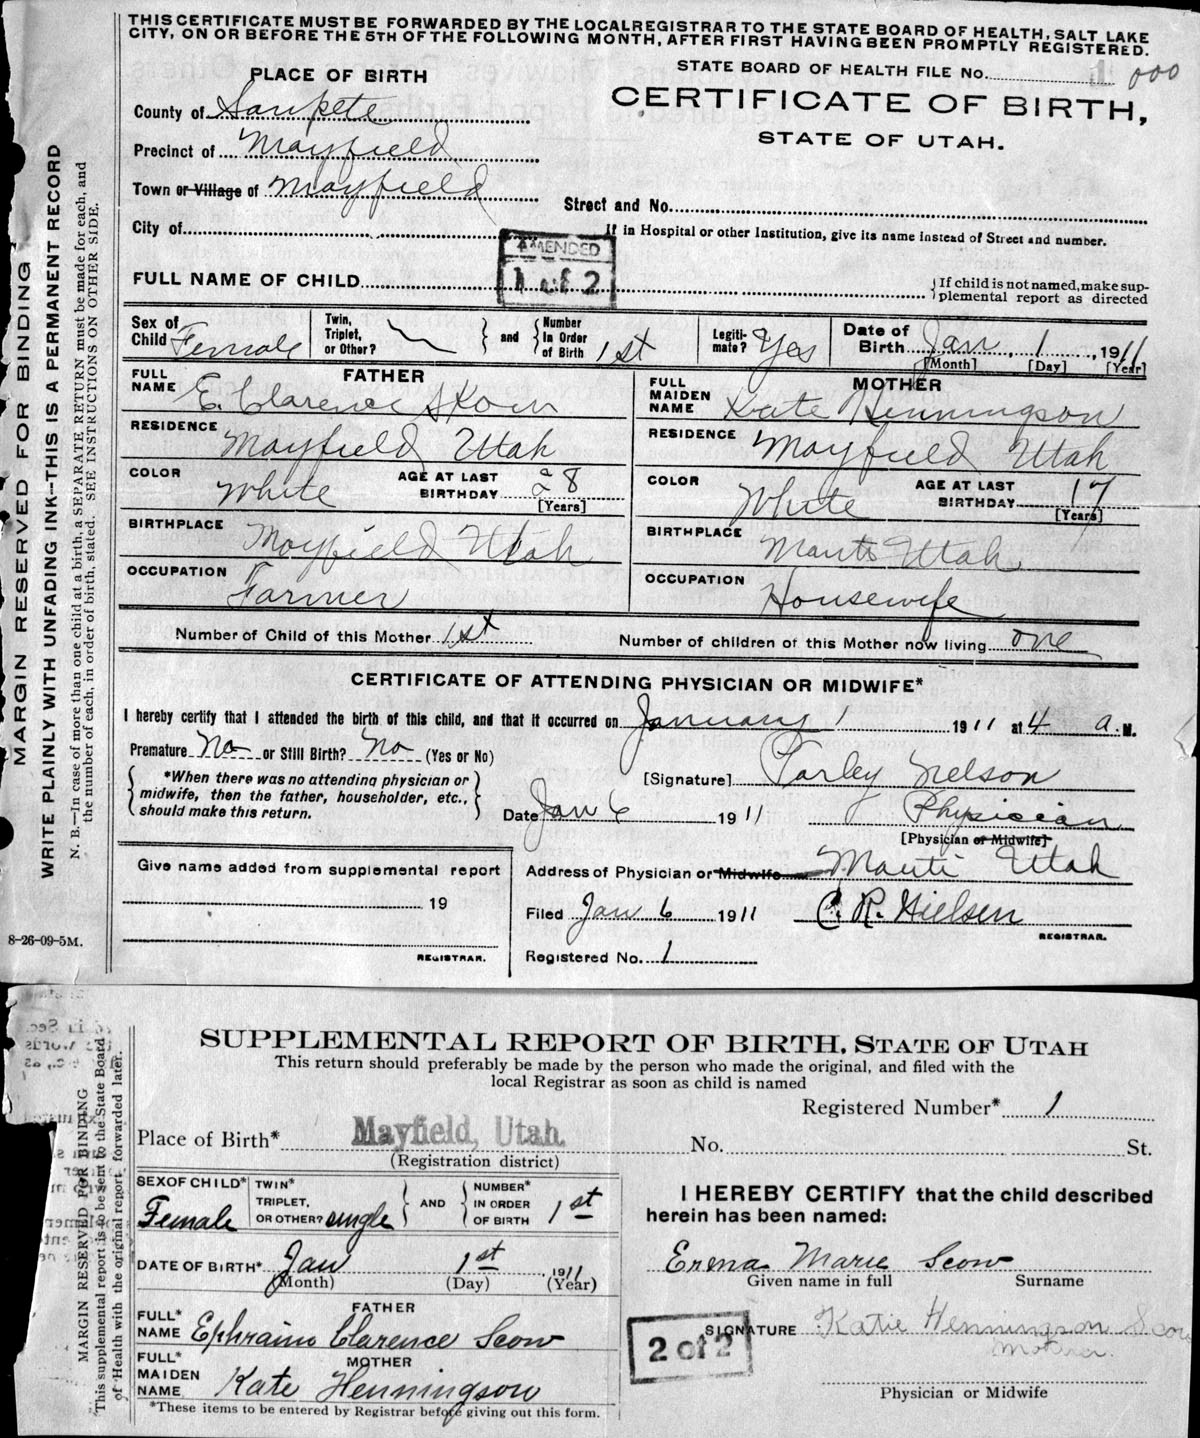 THIS CERTIFICATE MUST BE FORWARDED BY THE LOCAL REGISTRAR TO THE STATE BOARD OF HEALTH, SALT LAKE
CITY, ON OR BEFORE THE 5TH OF THE FOLLOWING MONTH, AFTER FIRST HAVING BEEN PROMPTLY REGISTERED.
STATE BOARD OF HEALTH FILE NO. 1 000
PLACE OF BIRTH
CERTIFICATE OF BIRTH,
STATE OF UTAH.
County of Sanpete
Precinct of Mayfield
Town or Village of Mayfield
Street and No.
City of
If in Hospital or other Institution, give its name instead of Street and number.
AMENDED
1 of 2
FULL NAME OF CHILD
If child is not named, make sup-
plemental report as directed
Sex of Child Female
Twin, Triplet, or Other?
and
Number In Order of Birth 1st
Legiti- mate? Yes
Date of Birth Jan, 1, 1911
[Month] [Day] [Year]
FATHER
FULL NAME E. Clarence
RESIDENCE Mayfield Utah
COLOR White
AGE AT LAST BIRTHDAY 28
[Years]
BIRTHPLACE Mayfield Utah
OCCUPATION Farmer
MOTHER
FULL MAIDEN NAME Kate Henningson
RESIDENCE Mayfield Utah
COLOR White
AGE AT LAST BIRTHDAY 17
[Years]
BIRTHPLACE Manti Utah
OCCUPATION Housewife
Number of Child of this Mother 1st
Number of children of this Mother now living one
CERTIFICATE OF ATTENDING PHYSICIAN OR MIDWIFE*
I hereby certify that I attended the birth of this child, and that it occurred on January 1 1911 at 4 a. M.
Premature No or Still Birth? No (Yes or No)
*When there was no attending physician or
midwife, then the father, householder, etc.,
should make this return.
[Signature] Parley Nelson
Date Jan 6 1911
Physician
[Physician or Midwife]
Give name added from supplemental report
19
REGISTRAR.
Address of Physician or Midwife Manti Utah
Filed Jan 6 1911 C. R. Nielsen
REGISTRAR.
Registered No. 1
8-26-09-5M.
MARGIN RESERVED FOR BINDING
WRITE PLAINLY WITH UNFADING INK—THIS IS A PERMANENT RECORD
N. B.—In case of more than one child at a birth, a SEPARATE RETURN must be made for each, and
the number of each, in order of birth, stated. SEE INSTRUCTIONS ON OTHER SIDE.
SUPPLEMENTAL REPORT OF BIRTH, STATE OF UTAH
This return should preferably be made by the person who made the original, and filed with the
local Registrar as soon as child is named
Registered Number* 1
Place of Birth* Mayfield, Utah. No. St.
(Registration district)
SEX OF CHILD* Female
TWIN* TRIPLET, OR OTHER? single
AND
NUMBER* IN ORDER OF BIRTH 1st
DATE OF BIRTH* Jan 1st, 1911
(Month) (Day) (Year)
FATHER
FULL* NAME Ephraim Clarence Scow
MOTHER
FULL* MAIDEN NAME Kate Henningson
*These items to be entered by Registrar before giving out this form.
I HEREBY CERTIFY that the child described
herein has been named:
Erma Marie Scow
Given name in full Surname
SIGNATURE Katie Henningson Scow
Mother.
Physician or Midwife
2 of 2
MARGIN RESERVED FOR BINDING
This supplemental report is to be sent to the State Board
of Health with the original report forwarded later.